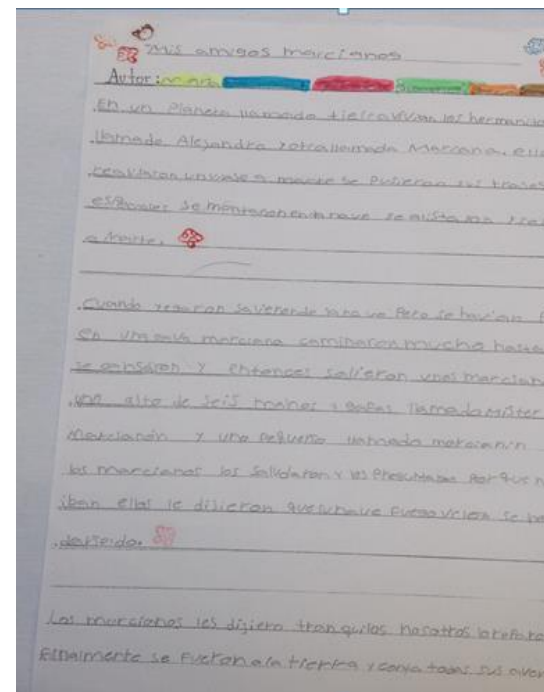 Mis amigos marcianos
Autor:
En un Planeta llamado tierra vivian las hermanitas
llamada Alejandra y otra llamada Mareana. ella
un viaje a marte se pusieron sus trages
espaciales se montaron en la nave se
a Marte.
Cuando yegaron salieron de la nave Pero se havian
en una marciana caminaron mucho hasta
se cansaron y entonces salieron unos marcian
uno alto de seis manos y gafas llamado mister
Marcianon y uno pequeño llamado marcianin
los marcianos los saludaron y les Preguntaron Por que
iban ellas le dijieron que su nave se
Los marcianos les dijiero tranquilas nosotros
Finalmente se fueron a la tierra y todas sus aven